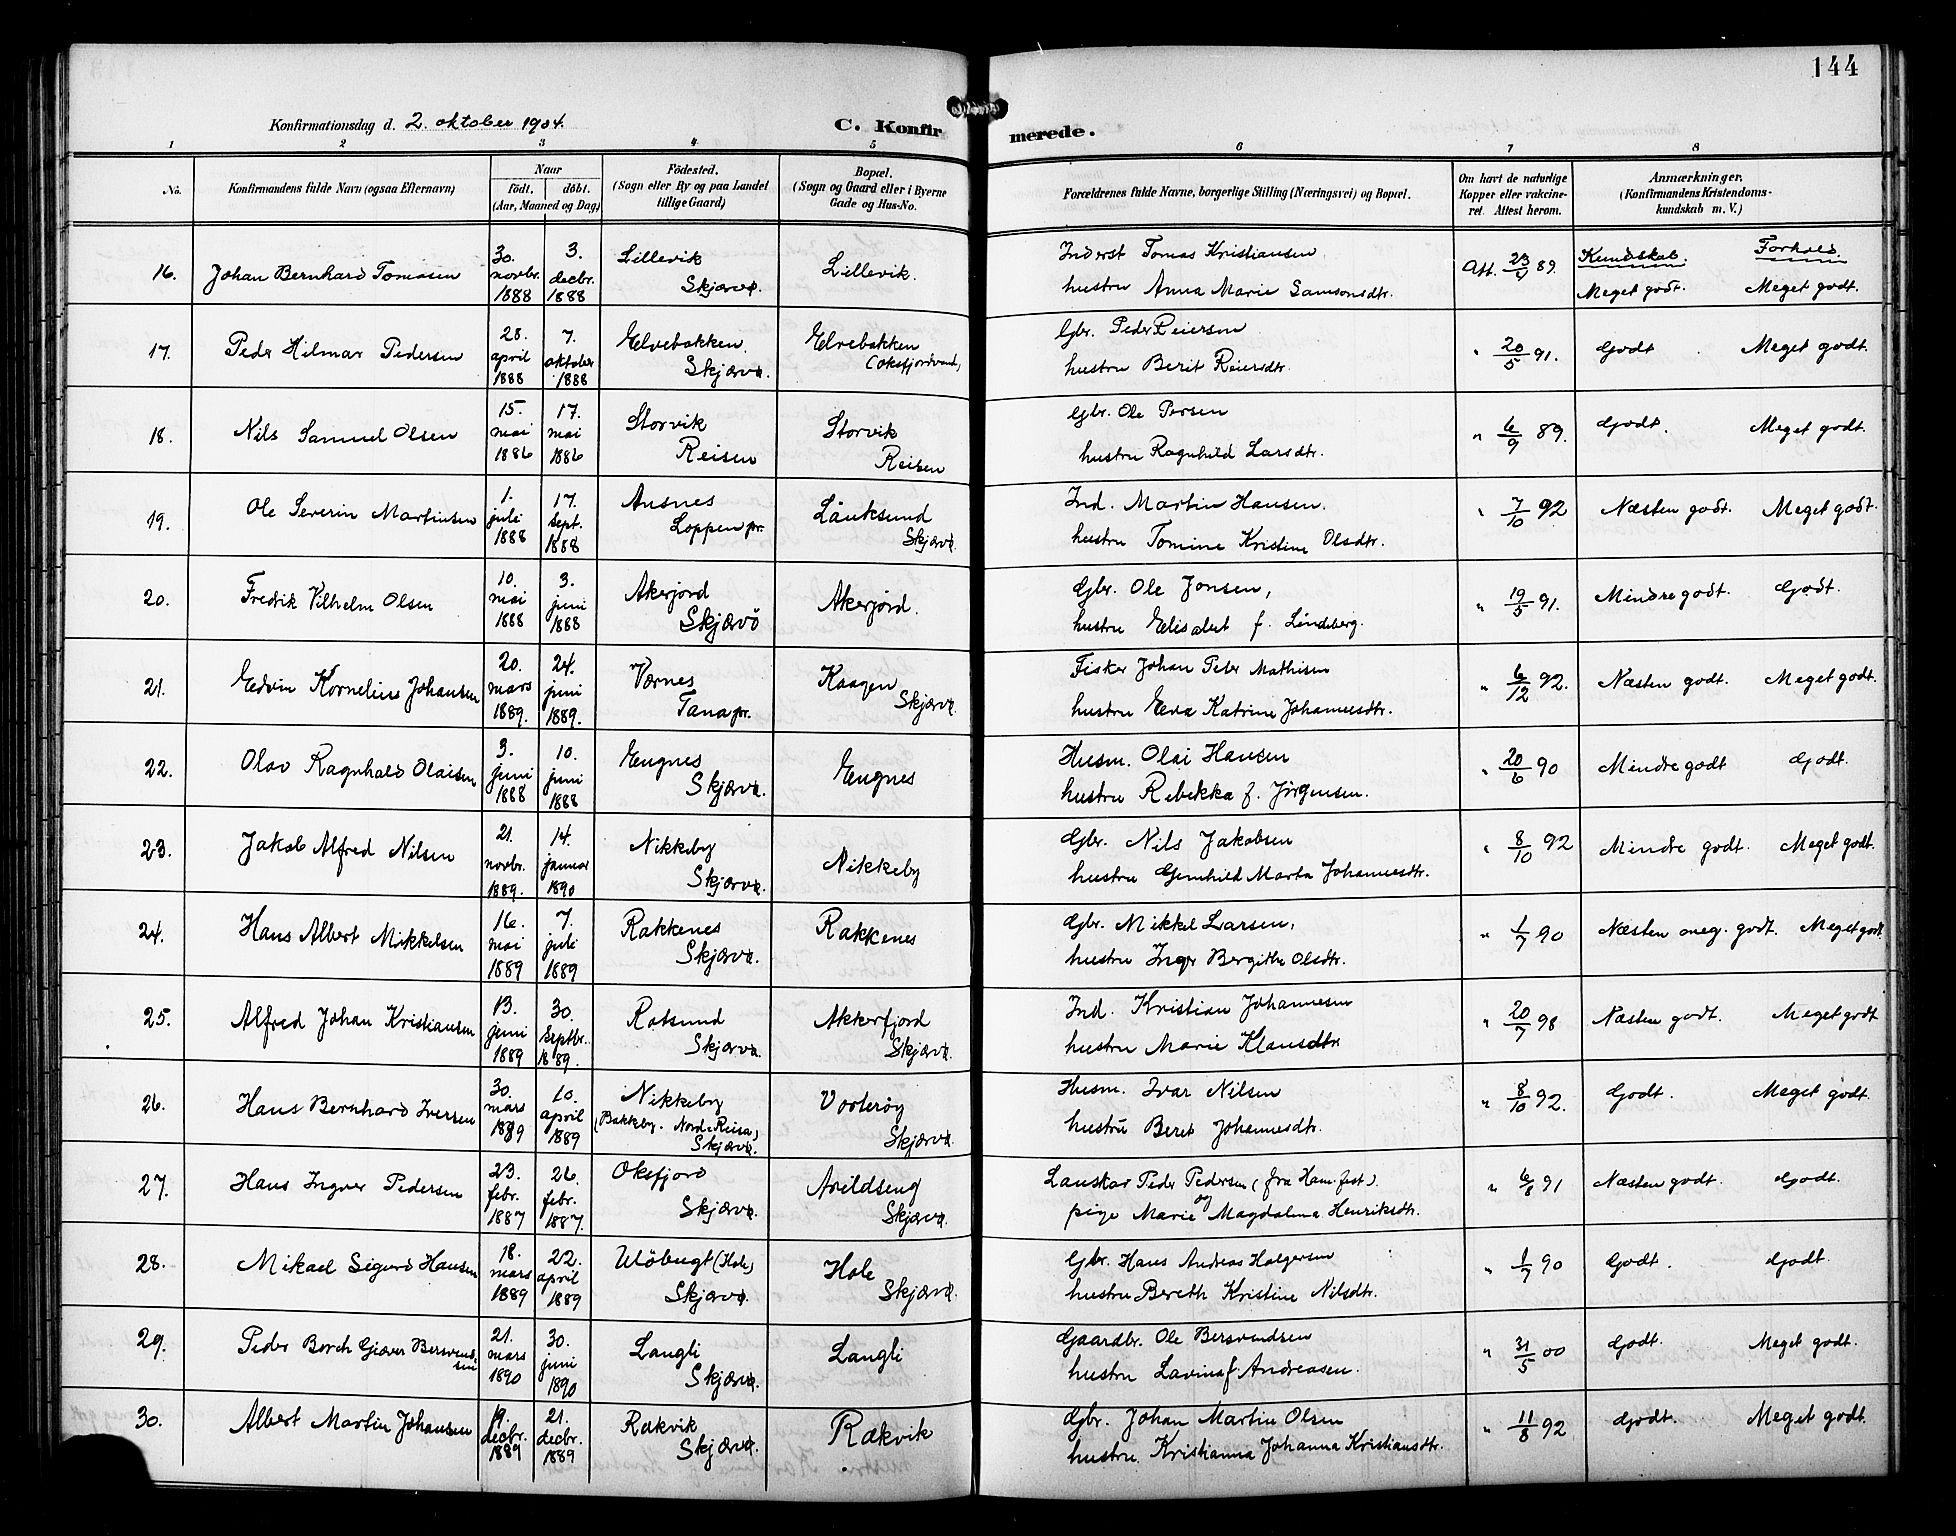 144
Konfirmationsdag d. 2. oktober 1904.
C. Konfirmerede.
1 2 3 4 5 6 7 8
No. Konfirmandens fulde Navn (ogsaa Efternavn) Naar födt. döbt. (Aar, Maaned og Dag) Födested. (Sogn eller By og paa Landet tillige Gaard) Bopæl. (Sogn og Gaard eller i Byerne Gade og Hus-No. Forældrenes fulde Navne, borgerlige Stilling (Næringsvei) og Bopæl. Om havt de naturlige Kopper eller vakcineret. Attest herom. Anmærkninger. (Konfirmandens Kristendomskundskab m. V.)
Kundskab. Forhold.
16. Johan Bernhard Tomasen 30. novbr. 1888 3. decbr. 1888 Lillevik Skjærvø. Lillevik. Inderst Tomas Kristiansen hustru Anna Marie Samsonsdtr. Att. 23/9 89. Meget godt. Meget godt.
17. Peder Hilmar Pedersen 28. april 1888 7. oktober 1888 Elvebakken Skjærvø. Elvebakken (Oksfjordvand) Gbr. Peder Reiersen hustru Berit Reiersdtr. " 20/5 91. Godt Meget godt.
18. Nils Samuel Olsen 15. mai 1886 17. mai 1886 Storvik Reisen Storvik Reisen Gbr. Ole Persen hustru Ragnhild Larsdtr. " 6/9 89. Godt. Meget godt.
19. Ole Severin Martinsen 1. juli 1888 17. sept. 1888 Ausnes Loppen pr. Lauksund Skjærvø. Ind. Martin Hansen. hustru Tomine Kristine Olsdtr. " 7/10 92 Næsten godt. Meget godt.
20. Fredrik Vilhelm Olsen 10. mai 1888 3. juni 1888 Akerjord Skjærvö Akerjord. Gbr. Ole Jonsen, hustru Elisabet f. Lindberg. " 19/5 91. Mindre godt. Godt.
21. Edvin Kornelius Johansen 20. mars 1889. 24. juni 1889. Værnes Tana pr. Kaagen Skjærvø. Fisker Johan Peter Mathisen hustru Eva Katrine Johannesdtr. " 6/12 92. Næsten godt. Meget godt.
22. Olav Ragnhald Olaisen 3. juni 1888 10. juni 1888 Engnes Skjærvø. Engnes Husm. Olai Hansen hustru Rebekka f. Jørgensen. " 20/6 90 Mindre godt Godt.
23. Jakob Alfred Nilsen 21. novbr. 1889. 14. januar 1890 Nikkeby Skjærvø. Nikkeby Gbr. Nils Jakobsen hustru Gunhild Marta Johannesdtr. " 8/10 92 Mindre godt. Meget godt.
24. Hans Albert Mikkelsen 16. mai 1889 7. juli 1889 Rakkenes Skjærvø. Rakkenes Gbr. Mikkel Larsen, hustru Inger Bergithe Olsdtr. " 1/7 90 Næsten meg. godt. Meget godt.
25. Alfred Johan Kristiansen 13. juni 1889 30. septbr. 1889. Rotsund Skjærvø. Akkerfjord Skjærvø. Ind. Kristian Johannesen hustru Marie Klausdtr " 20/7 98 Næsten godt. Meget godt
26. Hans Bernhard Iversen 30. mars 1889 10. april 1889 Nikkeby (Bakkeby. Nord-Reisa) Skjærvø. Vorterøy Skjærvø. Husm. Ivar Nilsen hustru Beret Johannesdtr. " 8/10 92. Godt. Meget godt.
27. Hans Ingver Pedersen 23. febr. 1887 26. febr. 1887. Oksfjord Skjærvø. Arildseng Skjærvø. Lauskar Peder Pedersen (fra Ham.fest). og pige Marie Magdalena Henriksdtr. " 6/8 91 Næsten godt. Godt.
28. Mikael Sigurd Hansen 18. mars 1889 22. april 1889 Uløbugt (Hole) Skjærvø. Hole Skjærvø. Gbr. Hans Andreas Holgersen hustru Bereth Kristine Nilsdtr. " 1/7 90 Godt. Godt.
29. Peder Borch Giæver Bersvendsen 21. mars 1890 30. juni 1890 Langli Skjærvø. Langli Gaardbr. Ole Bersvendsen hustru Lavina f. Andreasen. " 31/5 00 Godt. Meget godt.
30. Albert Martin Johansen 19. decbr. 1889 21. decbr. 1889 Rakvik Skjærvø. Rakvik Gbr. Johan Martin Olsen hustru Kristianna Johanna Kristiansdtr. " 11/8 92 Godt. Meget godt.